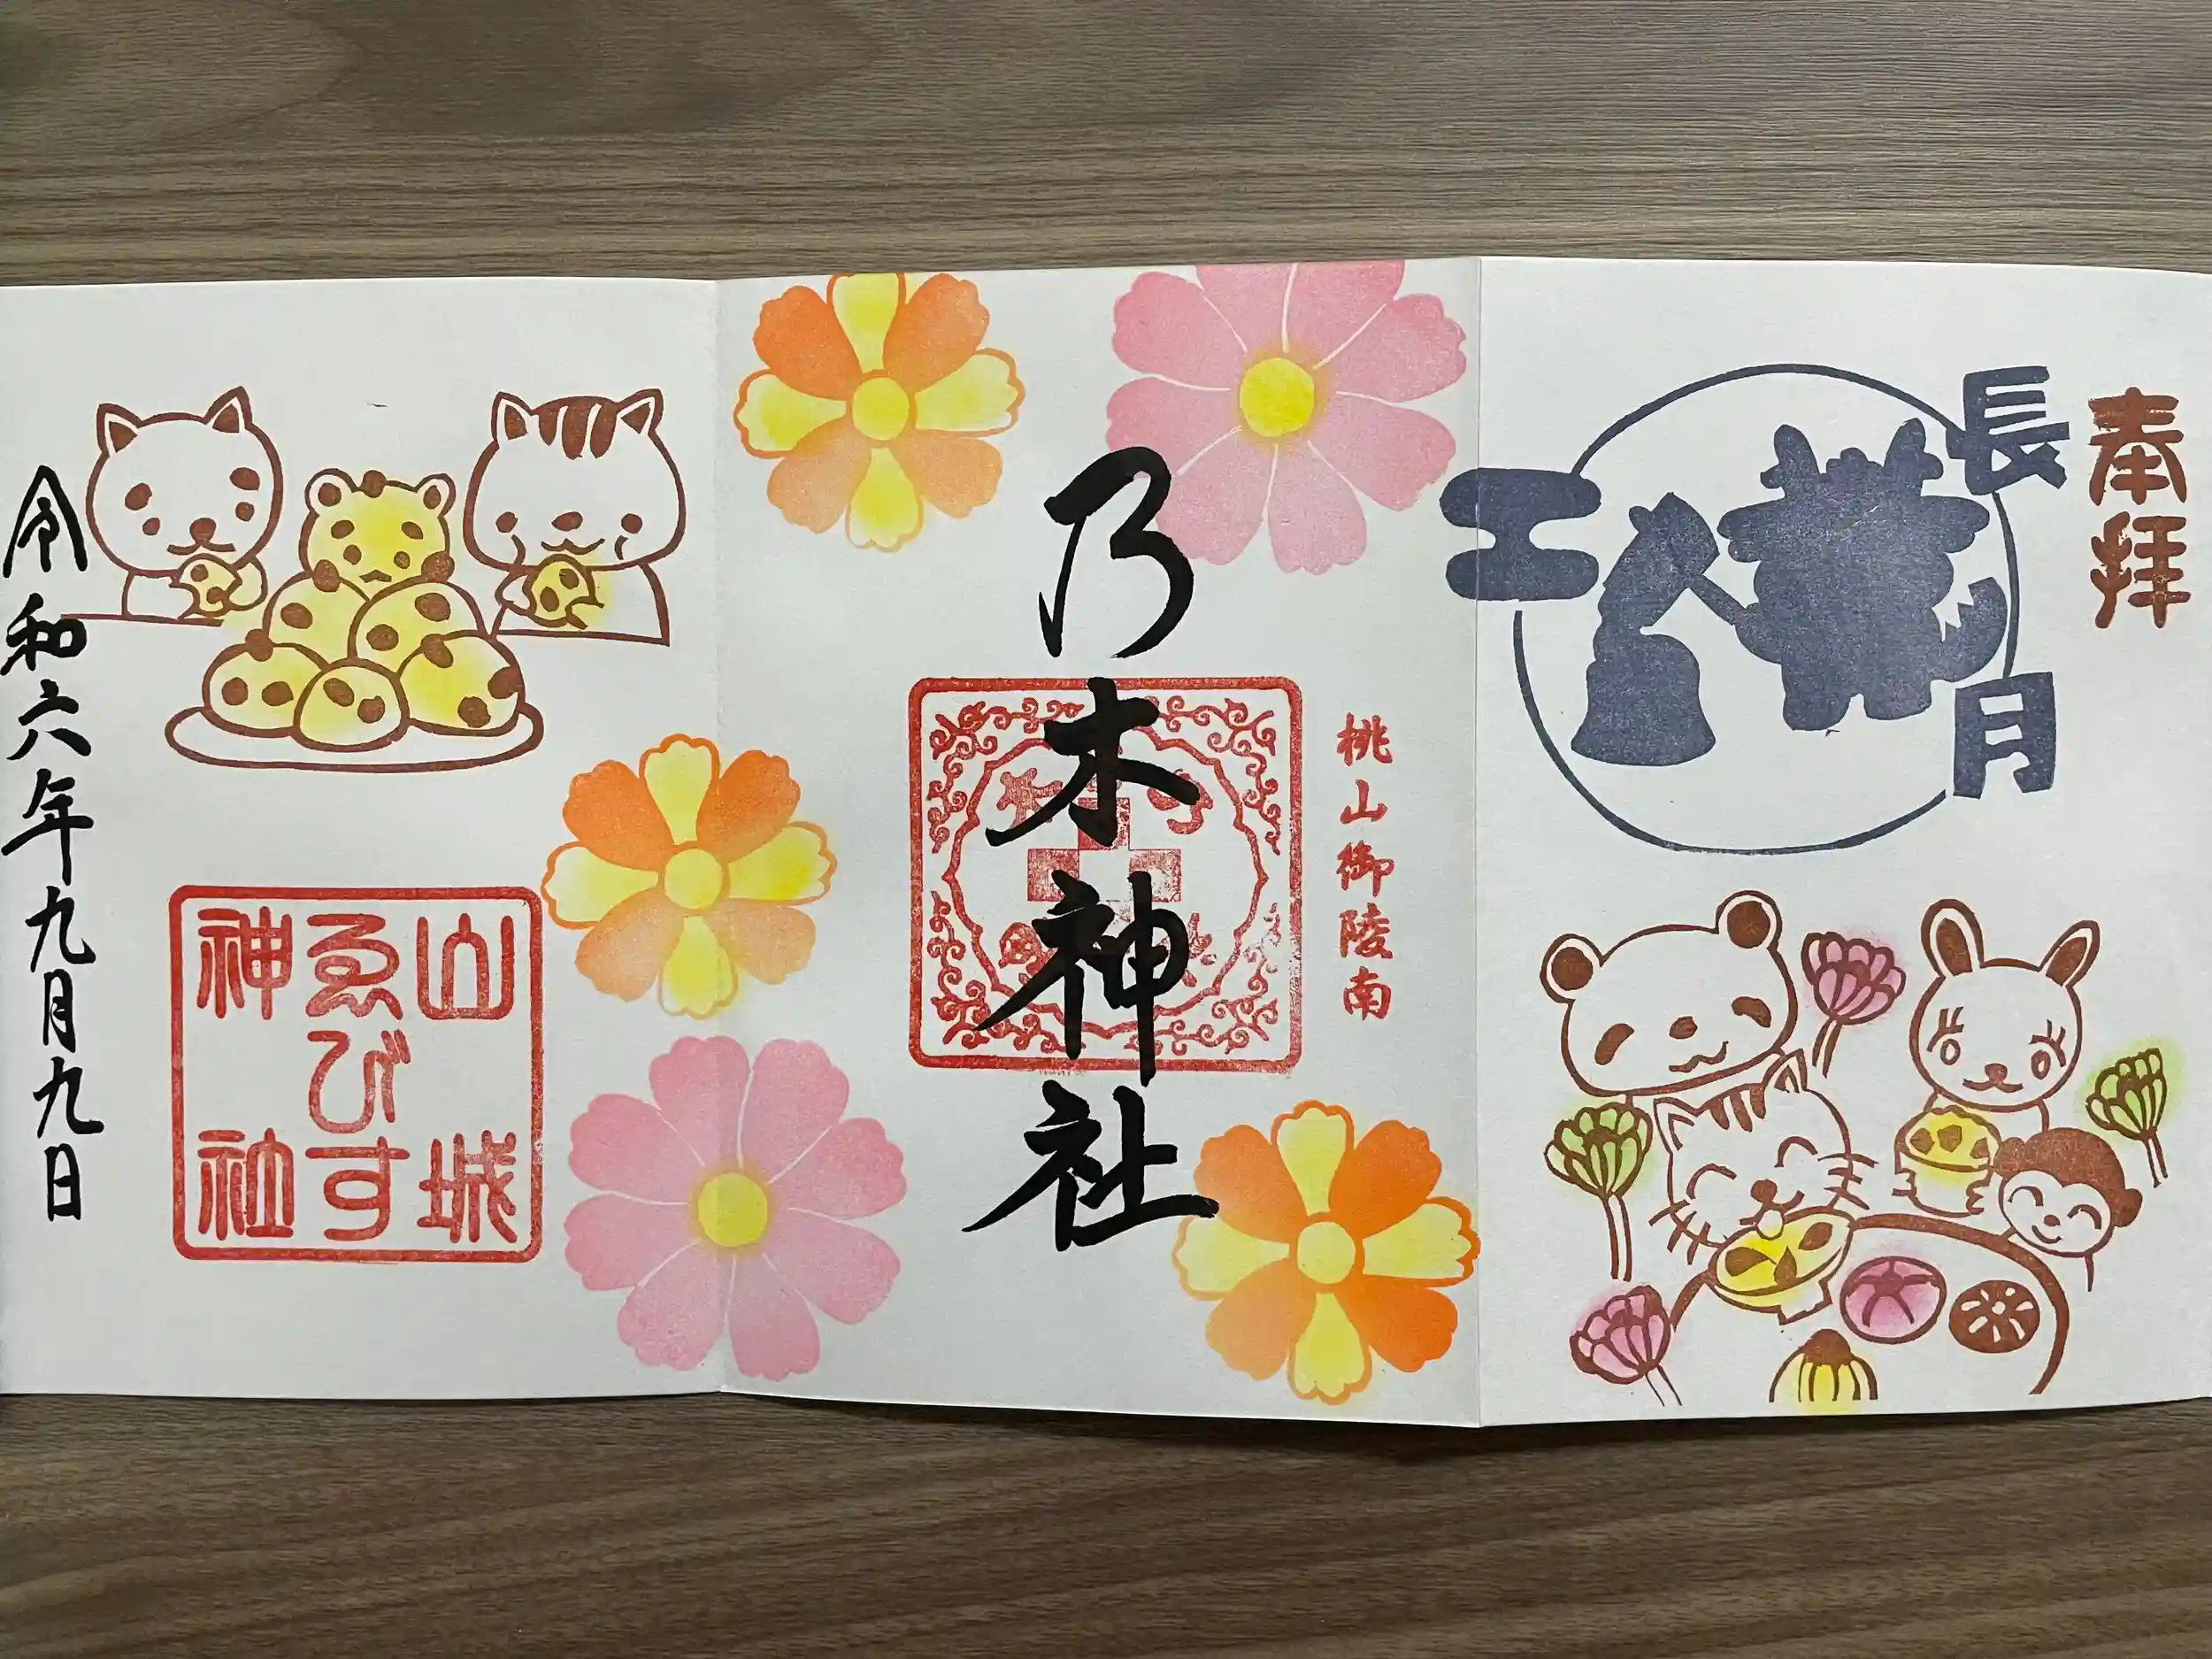 奉拝
長月
乃木神社
桃山御陵南
山城
ゑびす
神社
令和六年九月九日